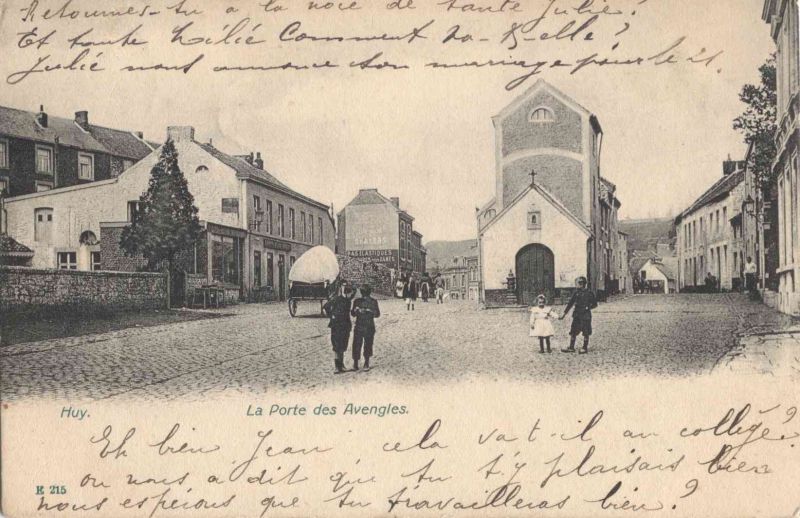 Retournes-tu à la noce de tante Julie?
Et tante Lélié Comment va-t-elle?
Julie nous annonce son mariage pour le 21.
BAS ÉLASTIQUES
Huy.
La Porte des Avengles.
E 215
Eh bien Jean, cela va-t-il au collège?
on nous a dit que tu t'y plaisais bien
nous espérons que tu travailleras bien?